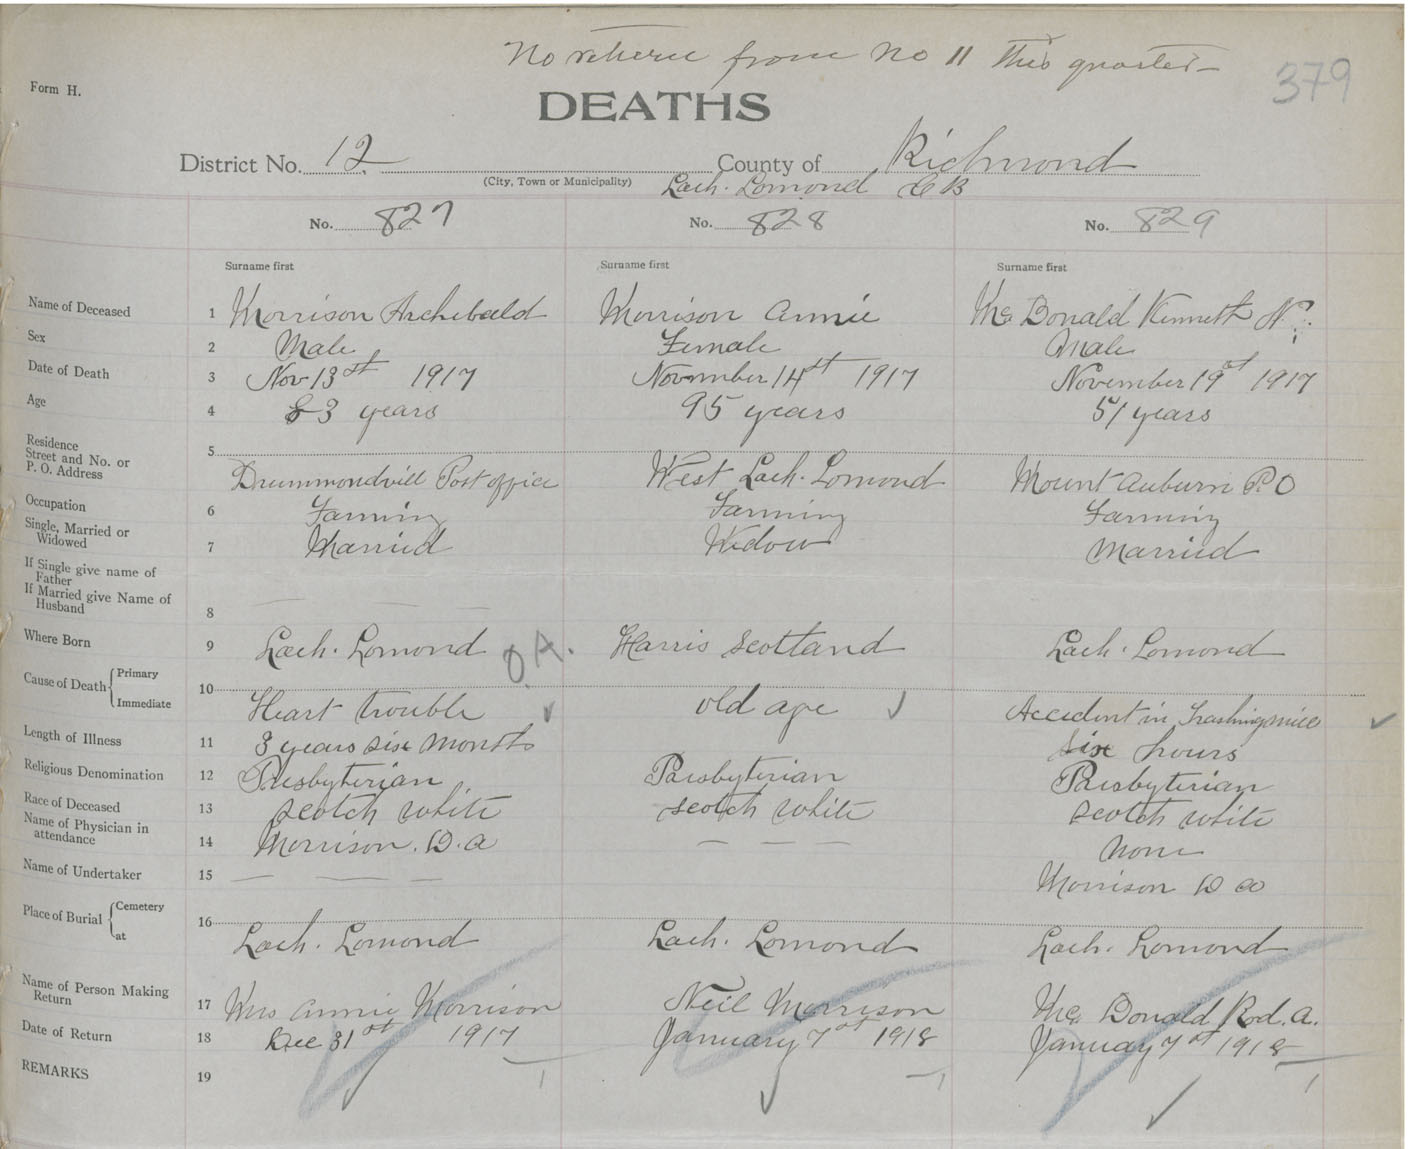 No return from No 11 this quarter
379
Form H.
DEATHS
District No. 12 County of Richmond
(City, Town or Municipality) Loch. Lomond C B
No. 827 No. 828 No. 829
Surname first Surname first Surname first
Name of Deceased 1 Morrison Archebald Morrison Annie Mc Donald Kenneth N
Sex 2 Male Female Male
Date of Death 3 Nov 13st 1917 November 14st 1917 November 19st 1917
Age 4 83 years 95 years 51 years
Residence
Street and No. or
P. O. Address 5 Drummondvill Post office West Loch. Lomond Mount Auburn P.O
Occupation 6 Farming Farming Farming
Single, Married or
Widowed 7 Married Widow Married
If Single give name of
Father
If Married give Name of
Husband 8
Where Born 9 Loch. Lomond Harris Scotland Loch. Lomond
O A.
Cause of Death Primary 10
Immediate Heart trouble old age Accedent in Trashingmill
Length of Illness 11 3 years six months six hours
Religious Denomination 12 Presbyterian Presbyterian Presbyterian
Race of Deceased 13 Scotch white scotch white scotch white
Name of Physician in
attendance 14 Morrison. D. a None
Name of Undertaker 15 Morrison D a
Place of Burial Cemetery 16
at Loch. Lomond Loch. Lomond Loch. Lomond
Name of Person Making
Return 17 Mrs Annie Morrison Neil Morrison Mc Donald Rod. A.
Date of Return 18 Dec 31st 1917 January 7st 1918 January 7st 1918
REMARKS 19